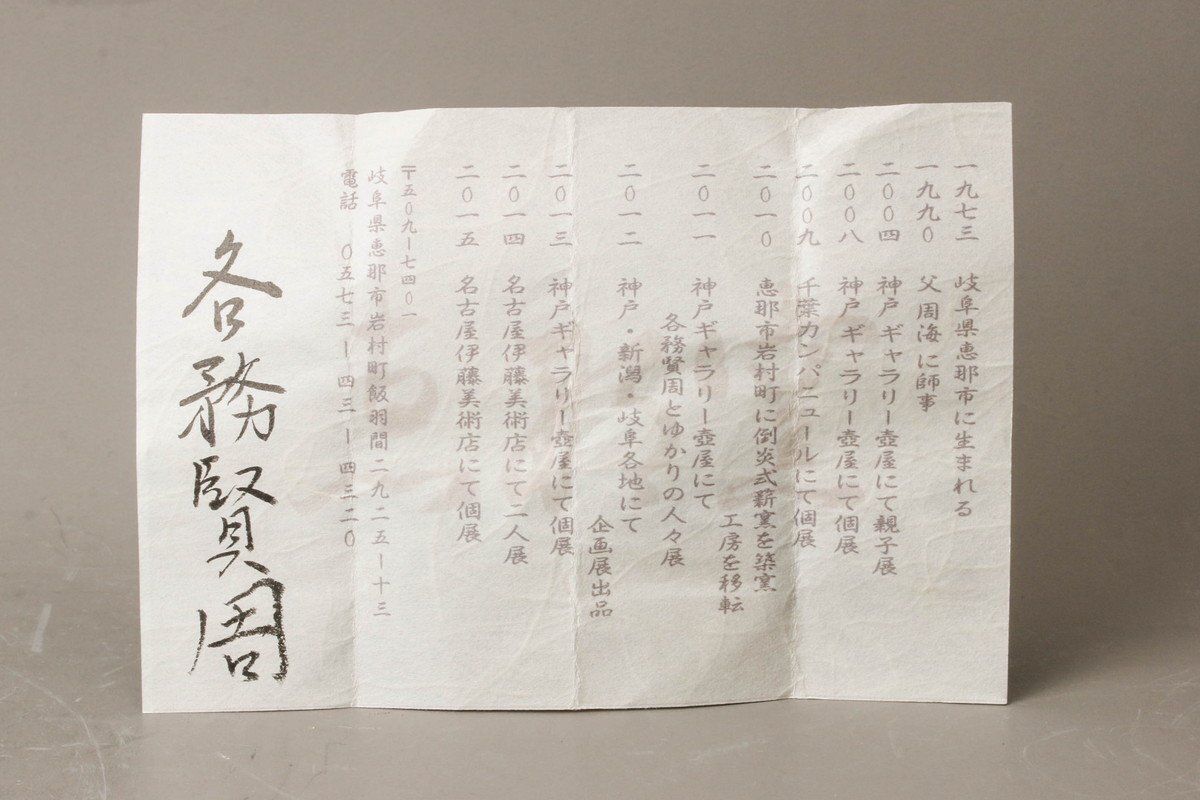 一九七三　岐阜県恵那市に生まれる
一九九〇　父周海に師事
二〇〇四　神戸ギャラリー壺屋にて親子展
二〇〇八　神戸ギャラリー壺屋にて個展
二〇〇九　千葉カンパニュールにて個展
二〇一〇　恵那市岩村町に倒炎式薪窯を築窯
工房を移転
二〇一一　神戸ギャラリー壺屋にて
各務賢周とゆかりの人々展
二〇一二　神戸・新潟・岐阜各地にて
企画展出品
二〇一三　神戸ギャラリー壺屋にて個展
二〇一四　名古屋伊藤美術店にて二人展
二〇一五　名古屋伊藤美術店にて個展
〒五〇九ー七四〇一
岐阜県恵那市岩村町飯羽間二九二五ー十三
電話　〇五七三ー四三ー四三二〇
各務賢周